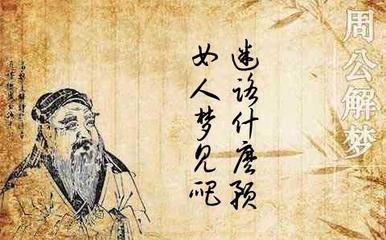 周公解梦
迷路什麽预
女人梦见呢